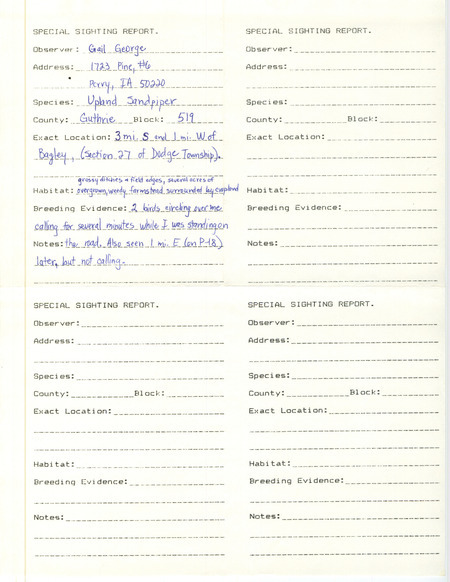 SPECIAL SIGHTING REPORT.
Observer: Gail George
Address: 1723 Pine, #6
Perry, IA 50220
Species: Upland Sandpiper
County: Guthrie Block: 519
Exact Location: 3 mi. S and 1 mi. W of
Bagley, (Section 27 of Dodge Township).
grassy ditches & field edges, several acres of
Habitat: overgrown, weedy farmstead surrounded by cropland
Breeding Evidence: 2 birds circling over me
calling for several minutes while I was standing on
Notes: the road. Also seen 1 mi. E (on P-18)
later, but not calling.
SPECIAL SIGHTING REPORT.
Observer:
Address:
Species:
County: Block:
Exact Location:
Habitat:
Breeding Evidence:
Notes:
SPECIAL SIGHTING REPORT.
Observer:
Address:
Species:
County: Block:
Exact Location:
Habitat:
Breeding Evidence:
Notes:
SPECIAL SIGHTING REPORT.
Observer:
Address:
Species:
County: Block:
Exact Location:
Habitat:
Breeding Evidence:
Notes: